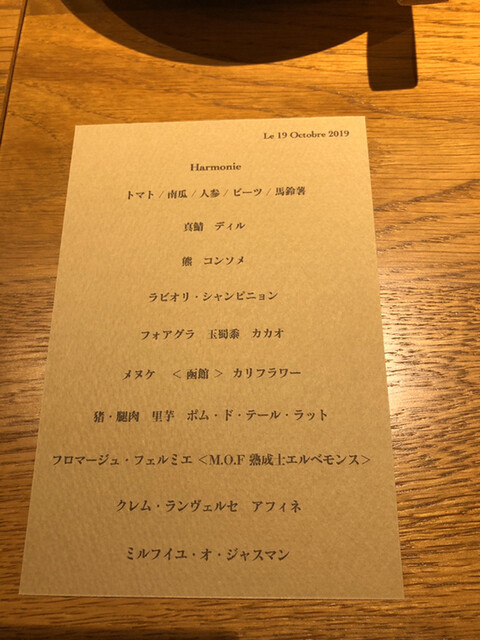 Le 19 Octobre 2019
Harmonie
トマト / 南瓜 / 人参 / ビーツ / 馬鈴薯
真鯖 ディル
熊 コンソメ
ラビオリ・シャンピニョン
フォアグラ 玉蜀黍 カカオ
メヌケ <函館> カリフラワー
猪・腿肉 里芋 ポム・ド・テール・ラット
フロマージュ・フェルミエ <M.O.F 熟成士エルベモンス>
クレム・ランヴェルセ アフィネ
ミルフイユ・オ・ジャスマン